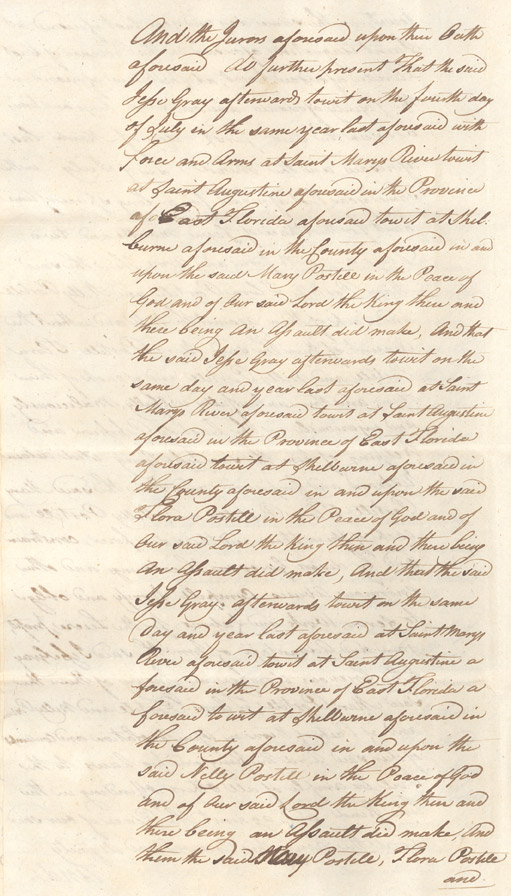 And the Jurors aforesaid upon their Oath
aforesaid do further present That the said
Jesse Gray afterwards towit on the fourth day
of July in the same year last aforesaid with
Force and Arms at Saint Marys River towit
at Saint Augustine aforesaid in the Province
of East Florida aforesaid towit at Shel-
burne aforesaid in the County aforesaid in and
upon the said Mary Postill in the Peace of
God and of Our said Lord the King there and
there being An Assault did make, And that
the said Jesse Gray afterwards towit on the
same day and year last aforesaid at Saint
Marys River aforesaid towit at Saint Augustine
aforesaid in the Province of East Florida
aforesaid towit at Shelburne aforesaid in
the County aforesaid in and upon the said
Flora Postill in the Peace of God and of
Our said Lord the King then and there being
An Assault did make, And that the said
Jesse Gray afterwards towit on the same
Day and year last aforesaid at Saint Marys
River aforesaid towit at Saint Augustine a
foresaid in the Province of East Florida a
foresaid to wit at Shelburne aforesaid in
the County aforesaid in and upon the
said Nelly Postill in the Peace of God
and of Our said Lord the King then and
there being an Assault did make, And
them the said Mary Postill, Flora Postill
and